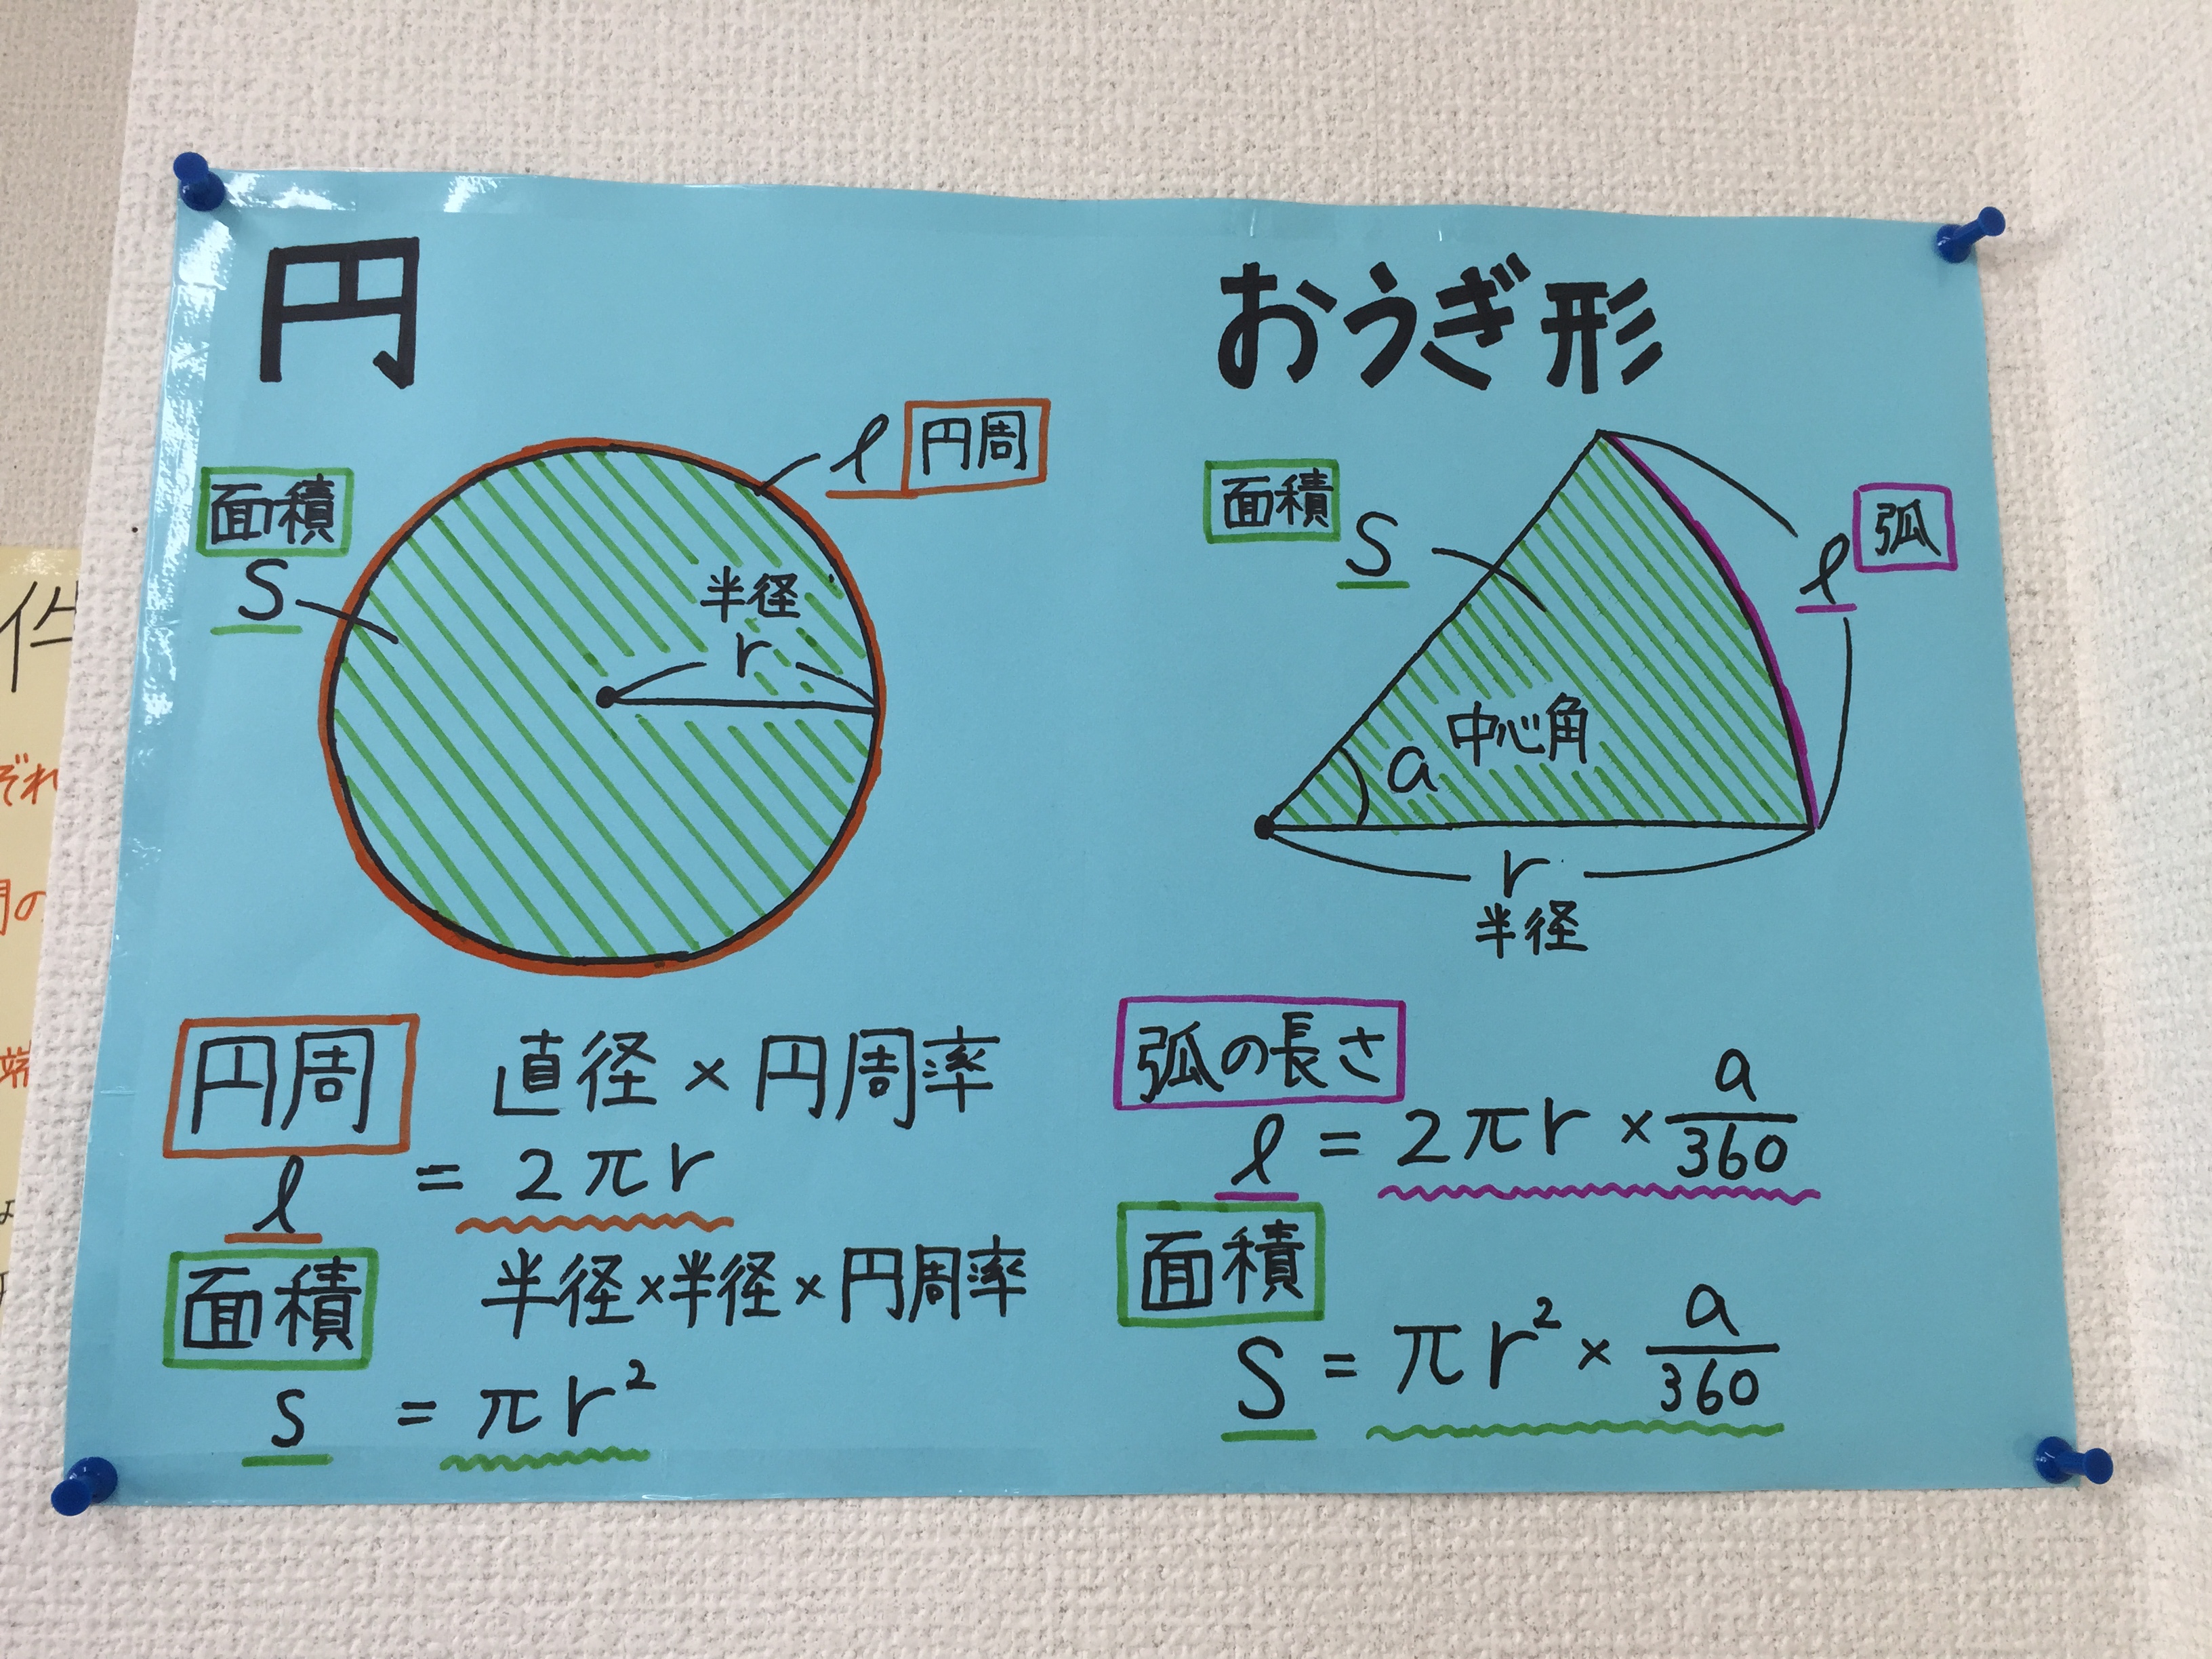 円
l 円周
面積
S
半径
r
円周 直径×円周率
l = 2πr
面積 半径×半径×円周率
S = πr²
おうぎ形
面積
S
弧
l
中心角
a
r
半径
弧の長さ
l = 2πr × a/360
面積
S = πr² × a/360
件
ぞれ
の
端